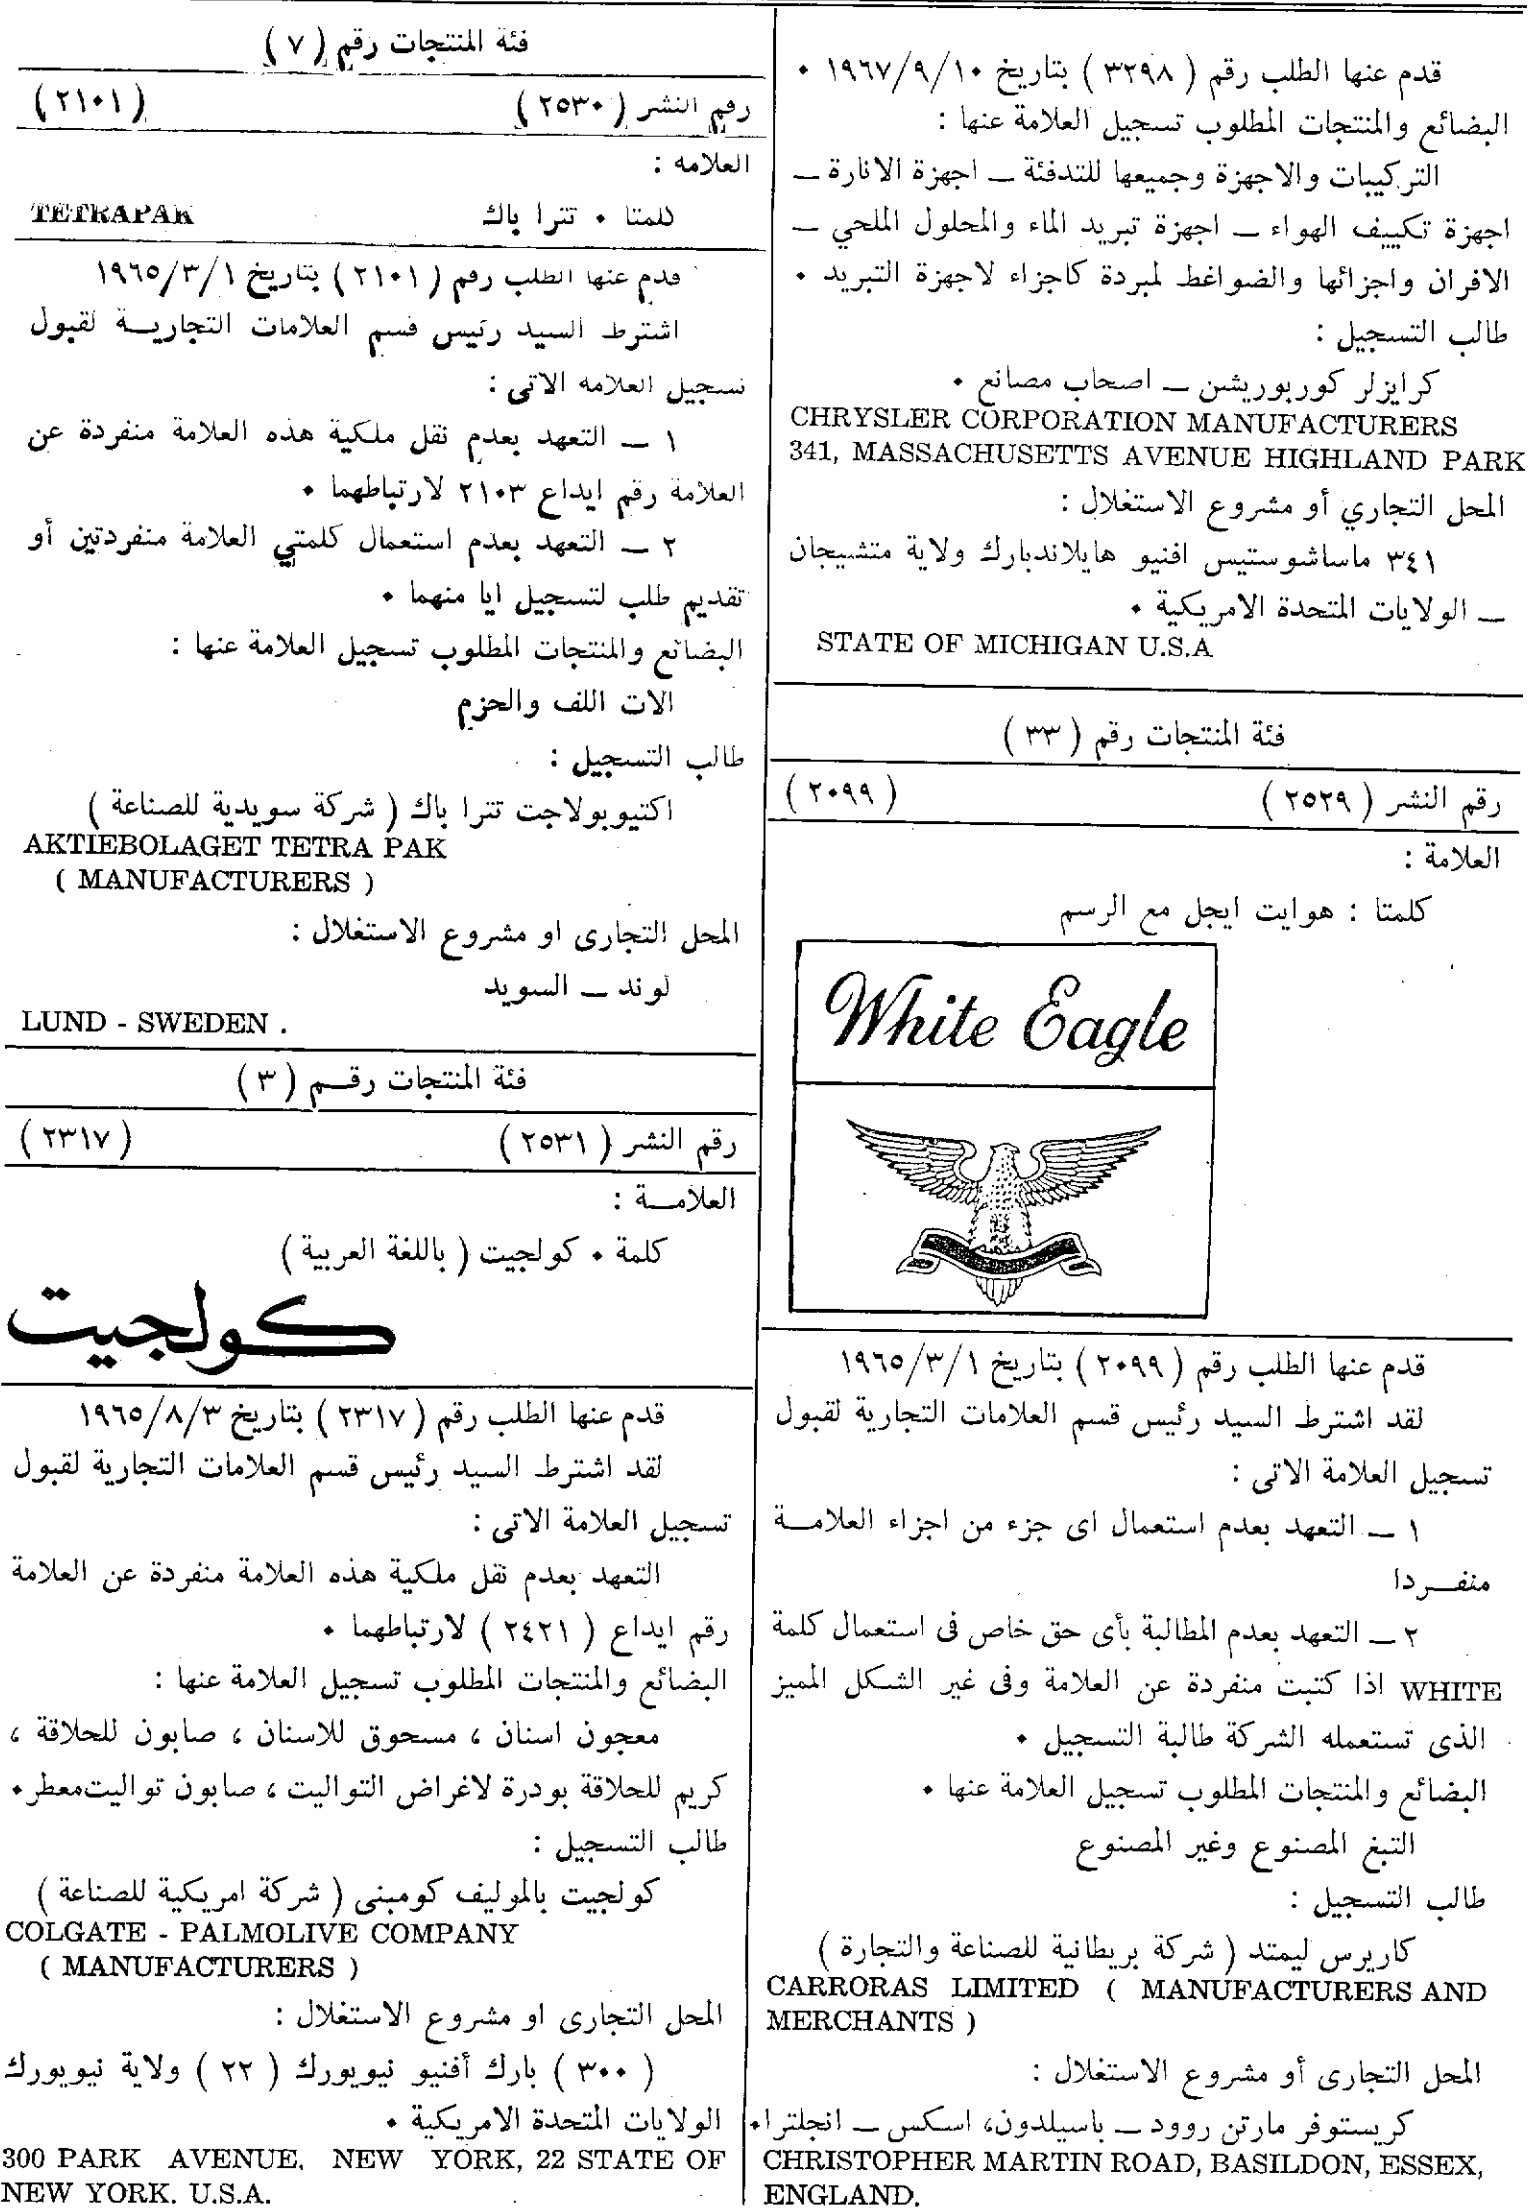 قدم عنها الطلب رقم ( ٣٢٩٨ ) بتاريخ ١٩٦٧/٩/١٠ ٠
البضائع والمنتجات المطلوب تسجيل العلامة عنها :
التركيبات والاجهزة وجميعها للتدفئة ــ اجهزة الانارة ــ
اجهزة تكييف الهواء ــ اجهزة تبريد الماء والمحلول الملحي ــ
الافران واجزائها والضواغط لمبردة كاجزاء لاجهزة التبريد ٠
طالب التسجيل :
كرايزلر كوربوريشن ــ اصحاب مصانع ٠
CHRYSLER CORPORATION MANUFACTURERS
341, MASSACHUSETTS AVENUE HIGHLAND PARK
المحل التجاري أو مشروع الاستغلال :
٣٤١ ماساشوستيس افنيو هايلاندبارك ولاية متشيجان
ــ الولايات المتحدة الامريكية ٠
STATE OF MICHIGAN U.S.A
فئة المنتجات رقم ( ٣٣ )
رقم النشر ( ٢٥٢٩ ) ( ٢٠٩٩ )
العلامة :
كلمتا : هوايت ايجل مع الرسم
White Eagle
قدم عنها الطلب رقم ( ٢٠٩٩ ) بتاريخ ١٩٦٥/٣/١
لقد اشترط السيد رئيس قسم العلامات التجارية لقبول
تسجيل العلامة الاتى :
١ ــ التعهد بعدم استعمال اى جزء من اجزاء العلامــة
منفــردا
٢ ــ التعهد بعدم المطالبة بأى حق خاص فى استعمال كلمة
WHITE اذا كتبت منفردة عن العلامة وفى غير الشكل المميز
الذى تستعمله الشركة طالبة التسجيل ٠
البضائع والمنتجات المطلوب تسجيل العلامة عنها ٠
التبغ المصنوع وغير المصنوع
طالب التسجيل :
كاريرس ليمتد ( شركة بريطانية للصناعة والتجارة )
CARRORAS LIMITED ( MANUFACTURERS AND
MERCHANTS )
المحل التجارى أو مشروع الاستغلال :
كريستوفر مارتن روود ــ باسيلدون، اسكس ــ انجلترا٠
CHRISTOPHER MARTIN ROAD, BASILDON, ESSEX,
ENGLAND.
فئة المنتجات رقم ( ٧ )
رقم النشر ( ٢٥٣٠ ) ( ٢١٠١ )
العلامه :
كلمتا ٠ تترا باك TETRAPAK
قدم عنها الطلب رقم ( ٢١٠١ ) بتاريخ ١٩٦٥/٣/١
اشترط السيد رئيس قسم العلامات التجاريــة لقبول
تسجيل العلامه الاتى :
١ ــ التعهد بعدم نقل ملكية هذه العلامة منفردة عن
العلامة رقم ايداع ٢١٠٣ لارتباطهما ٠
٢ ــ التعهد بعدم استعمال كلمتي العلامة منفردتين أو
تقديم طلب لتسجيل ايا منهما ٠
البضائع والمنتجات المطلوب تسجيل العلامة عنها :
الات اللف والحزم
طالب التسجيل :
اكتيوبولاجت تترا باك ( شركة سويدية للصناعة )
AKTIEBOLAGET TETRA PAK
( MANUFACTURERS )
المحل التجارى او مشروع الاستغلال :
لوند ــ السويد
LUND - SWEDEN .
فئة المنتجات رقــم ( ٣ )
رقم النشر ( ٢٥٣١ ) ( ٢٣١٧ )
العلامــة :
كلمة ٠ كولجيت ( باللغة العربية )
كولجيت
قدم عنها الطلب رقم ( ٢٣١٧ ) بتاريخ ١٩٦٥/٨/٣
لقد اشترط السيد رئيس قسم العلامات التجارية لقبول
تسجيل العلامة الاتى :
التعهد بعدم نقل ملكية هذه العلامة منفردة عن العلامة
رقم ايداع ( ٢٤٢١ ) لارتباطهما ٠
البضائع والمنتجات المطلوب تسجيل العلامة عنها :
معجون اسنان ، مسحوق للاسنان ، صابون للحلاقة ،
كريم للحلاقة بودرة لاغراض التواليت ، صابون تواليت معطر٠
طالب التسجيل :
كولجيت بالموليف كومبنى ( شركة امريكية للصناعة )
COLGATE - PALMOLIVE COMPANY
( MANUFACTURERS )
المحل التجارى او مشروع الاستغلال :
( ٣٠٠ ) بارك أفنيو نيويورك ( ٢٢ ) ولاية نيويورك
الولايات المتحدة الامريكية ٠
300 PARK AVENUE, NEW YORK, 22 STATE OF
NEW YORK. U.S.A.